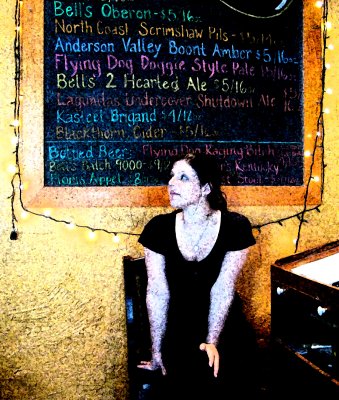 Bell's Oberon - $5/16oz
North Coast Scrimshaw Pils -
Anderson Valley Boont Amber $5/16oz
Flying Dog Doggie Style Pale
Bell's 2 Hearted Ale $5/16oz
Lagunitas Undercover Shutdown Ale
Kasteel Brigand $4/16oz
Blackthorn Cider - $5/16oz
Bottled Beer: Flying Dog Raging Bitch
Batch 9000 - Kentucky
Stout